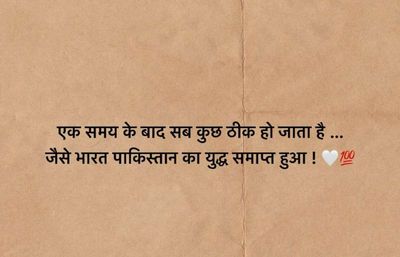 एक समय के बाद सब कुछ ठीक हो जाता है ...
जैसे भारत पाकिस्तान का युद्ध समाप्त हुआ ! 🤍💯